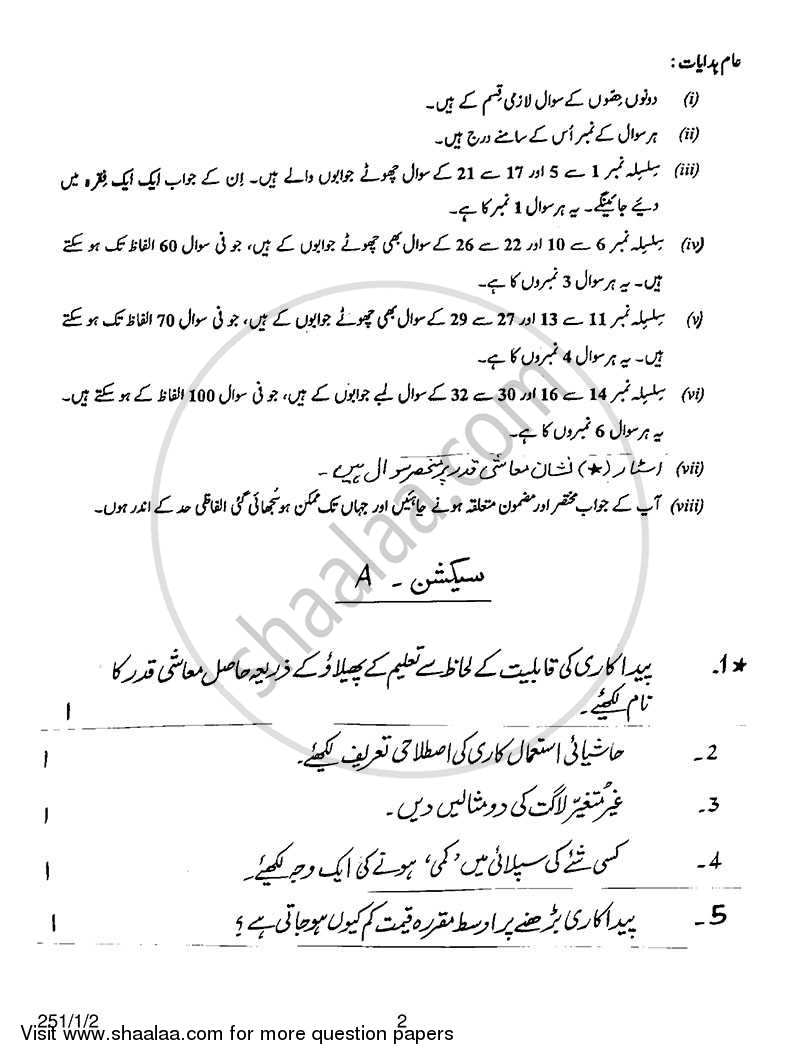 عام ہدایات :
(i) دونوں حصّوں کے سوال لازمی قِسم کے ہیں۔
(ii) ہر سوال کے نمبر اُس کے سامنے درج ہیں۔
(iii) سِلسِلہ نمبر 1 سے 5 اور 17 سے 21 کے سوال چھوٹے جوابوں والے ہیں۔ اِن کے جواب ایک ایک فِقرہ میں
دیئے جائینگے۔ یہ ہر سوال 1 نمبر کا ہے۔
(iv) سِلسِلہ نمبر 6 سے 10 اور 22 سے 26 کے سوال بھی چھوٹے جوابوں کے ہیں، جو فی سوال 60 الفاظ تک ہو سکتے
ہیں۔ یہ ہر سوال 3 نمبروں کا ہے۔
(v) سِلسِلہ نمبر 11 سے 13 اور 27 سے 29 کے سوال بھی چھوٹے جوابوں کے ہیں، جو فی سوال 70 الفاظ تک ہو سکتے
ہیں۔ یہ ہر سوال 4 نمبروں کا ہے۔
(vi) سِلسِلہ نمبر 14 سے 16 اور 30 سے 32 کے سوال لمبے جوابوں کے ہیں، جو فی سوال 100 الفاظ کے ہو سکتے ہیں۔
یہ ہر سوال 6 نمبروں کا ہے۔
(vii) اسٹار (★) نشان معاشی قدر پر منحصر سوال ہیں۔
(viii) آپ کے جواب مختصر اور مضمون متعلقہ ہونے چاہئیں اور جہاں تک ممکن ہو سُجھائی گئی الفاظی حد کے اندر ہوں۔
سیکشن - A
★1۔ پیداکاری کی قابلیت کے لحاظ سے تعلیم کے پھیلاؤ کے ذریعہ حاصل معاشی قدر کا
نام لکھیئے۔ 1
2۔ حاشیائی استعمال کاری کی اصطلاحی تعریف لکھئے۔ 1
3۔ غیر مُتغیّر لاگت کی دو مثالیں دیں۔ 1
4۔ کسی شئے کی سپلائی میں ’کمی‘ ہونے کی ایک وجہ لکھیئے۔ 1
5۔ پیداکاری بڑھنے پر اوسط مقررہ قیمت کم کیوں ہو جاتی ہے؟ 1
251/1/2 2
Visit www.shaalaa.com for more question papers
shaalaa.com